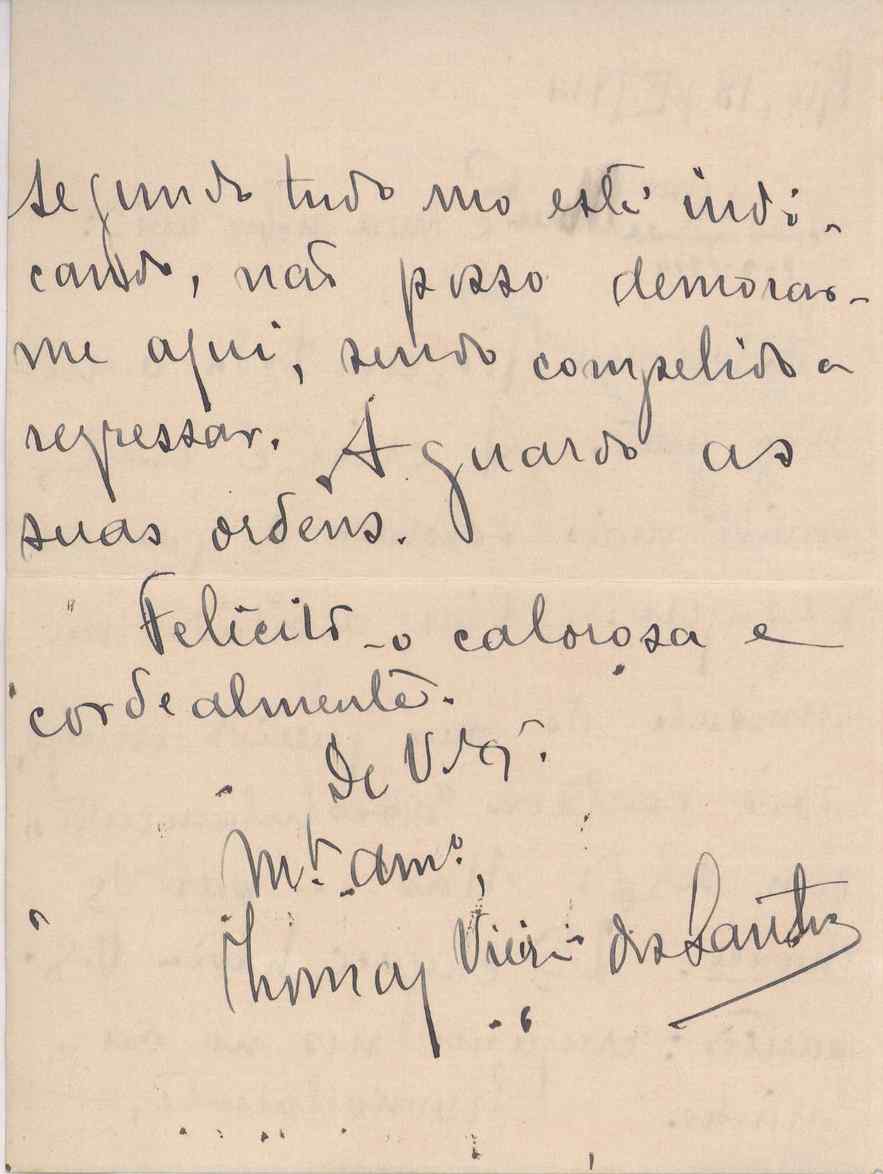 segundo tudo mo está indi-
cando, não posso demorar-
me aqui, sendo compelido a
regressar. Aguardo as
suas ordens.
Felicito-o calorosa e
cordealmente.
De V.
Mt. amº,
Thomaz Vieira dos Santos